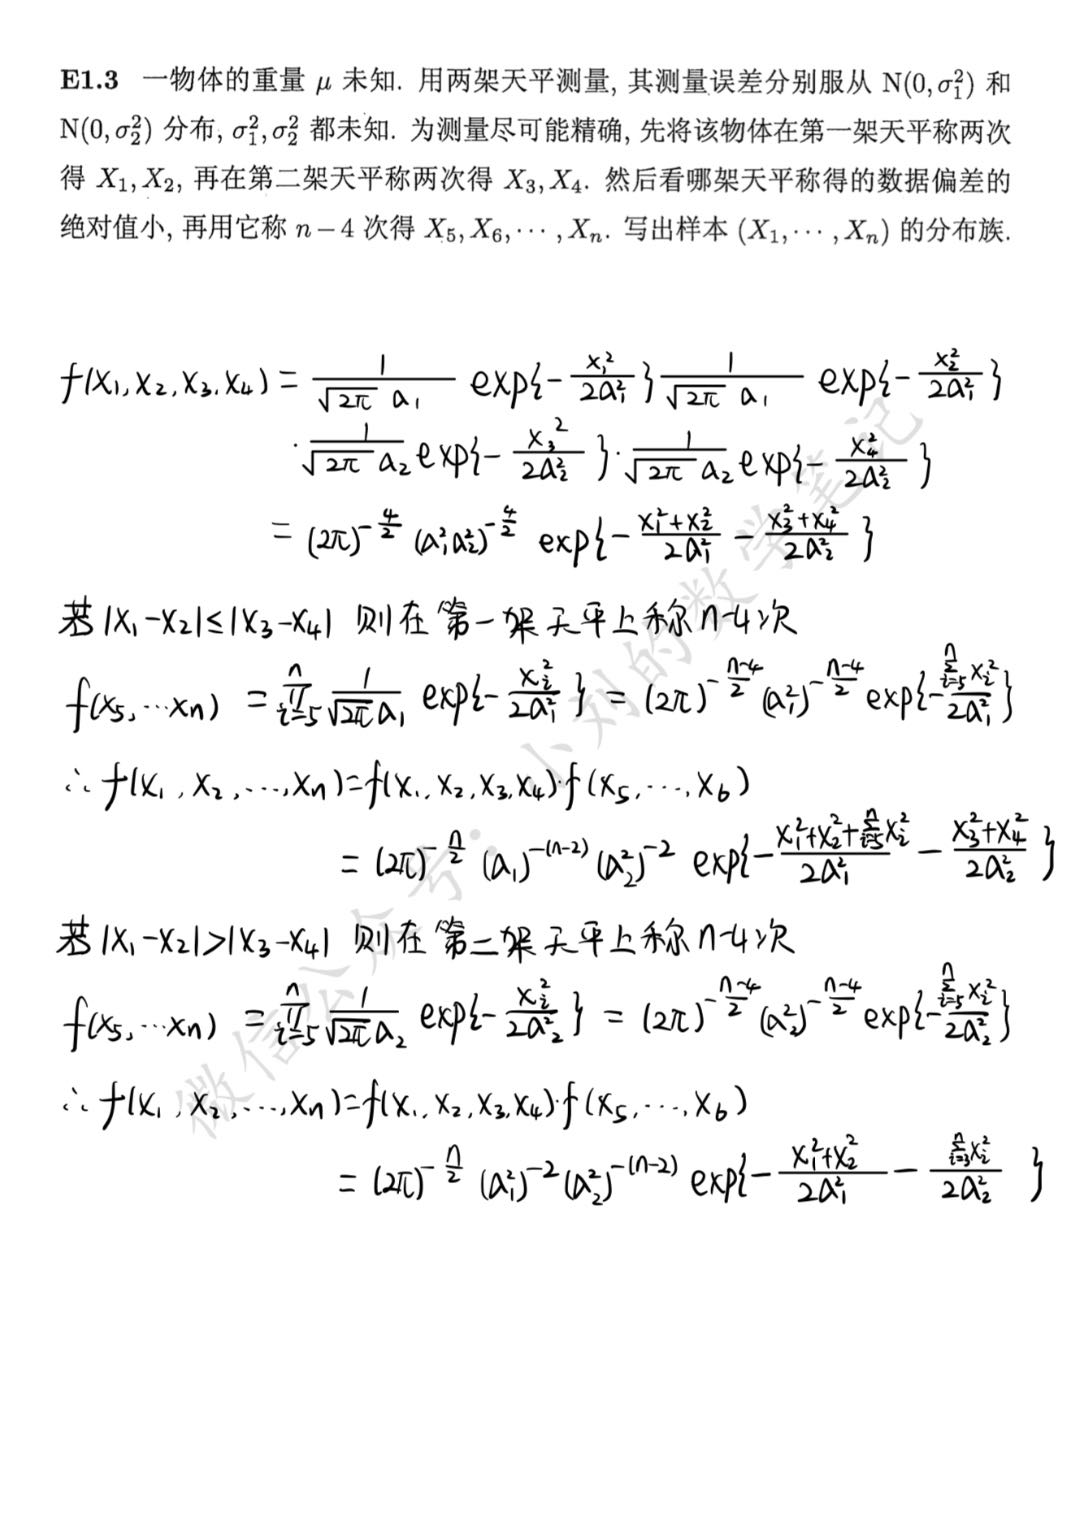 E1.3 一物体的重量 μ 未知. 用两架天平测量, 其测量误差分别服从 N(0,σ₁²) 和
N(0,σ₂²) 分布, σ₁²,σ₂² 都未知. 为测量尽可能精确, 先将该物体在第一架天平称两次
得 X₁,X₂, 再在第二架天平称两次得 X₃,X₄. 然后看哪架天平称得的数据偏差的
绝对值小, 再用它称 n−4 次得 X₅,X₆,⋯,Xₙ. 写出样本 (X₁,⋯,Xₙ) 的分布族.
f(x₁,x₂,x₃,x₄) = 1/(√2π a₁) exp{-x₁²/2a₁²} 1/(√2π a₁) exp{-x₂²/2a₁²}
·1/(√2π a₂) exp{-x₃²/2a₂²}·1/(√2π a₂) exp{-x₄²/2a₂²}
= (2π)^(-4/2) (a₁²a₂²)^(-4/2) exp{-(x₁²+x₂²)/2a₁² - (x₃²+x₄²)/2a₂²}
若 |x₁-x₂|≤|x₃-x₄| 则在第一架天平上称n-4次
f(x₅,⋯xₙ) = ∏ⁿᵢ₌₅ 1/(√2π a₁) exp{-xᵢ²/2a₁²} = (2π)^(-(n-4)/2) (a₁²)^(-(n-4)/2) exp{-∑ⁿᵢ₌₅xᵢ²/2a₁²}
∴ f(x₁,x₂,…,xₙ)=f(x₁,x₂,x₃,x₄)·f(x₅,…,x₆)
= (2π)^(-n/2) (a₁)^(-(n-2)) (a₂²)^(-2) exp{-(x₁²+x₂²+∑ⁿᵢ₌₅xᵢ²)/2a₁² - (x₃²+x₄²)/2a₂²}
若 |x₁-x₂|>|x₃-x₄| 则在第二架天平上称n-4次
f(x₅,⋯xₙ) = ∏ⁿᵢ₌₅ 1/(√2π a₂) exp{-xᵢ²/2a₂²} = (2π)^(-(n-4)/2) (a₂²)^(-(n-4)/2) exp{-∑ⁿᵢ₌₅xᵢ²/2a₂²}
∴ f(x₁,x₂,…,xₙ)=f(x₁,x₂,x₃,x₄)·f(x₅,…,x₆)
= (2π)^(-n/2) (a₁²)^(-2) (a₂²)^(-(n-2)) exp{-(x₁²+x₂²)/2a₁² - ∑ⁿᵢ₌₃xᵢ²/2a₂²}
微信公众号：小刘的数学笔记